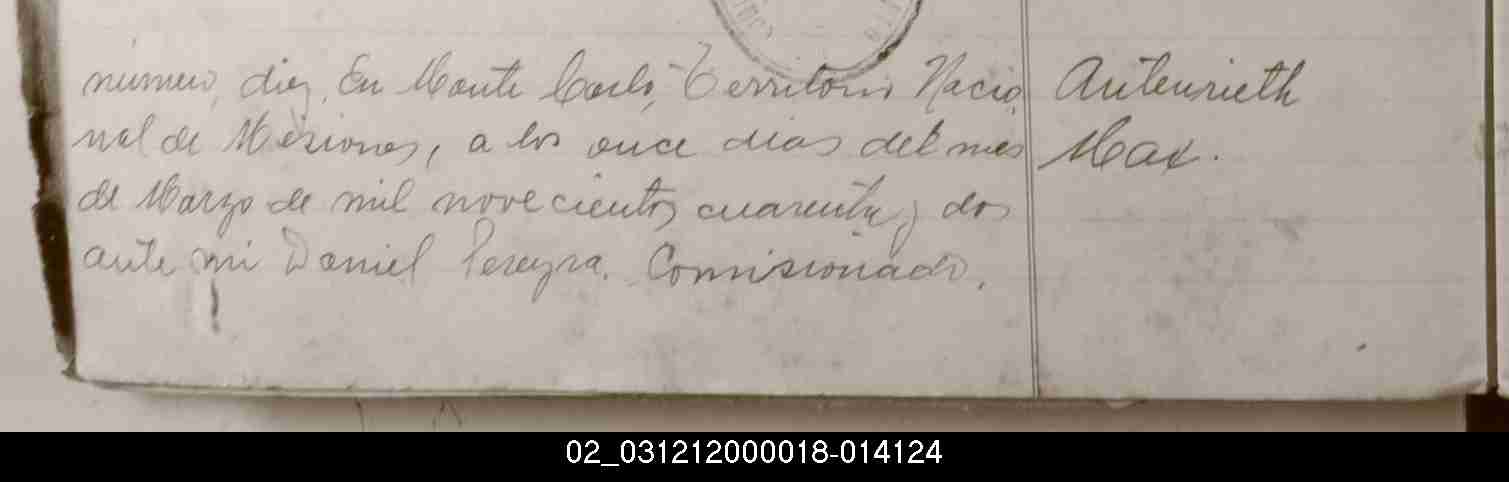 número, diez. En Monte Carlo, Territorio Nacio
nal de Misiones, a los once dias del mes
de Marzo de mil novecientos cuarenta y dos
ante mi Daniel Pereyra. Comisionado.
Autenrieth
Max.
02_031212000018-014124